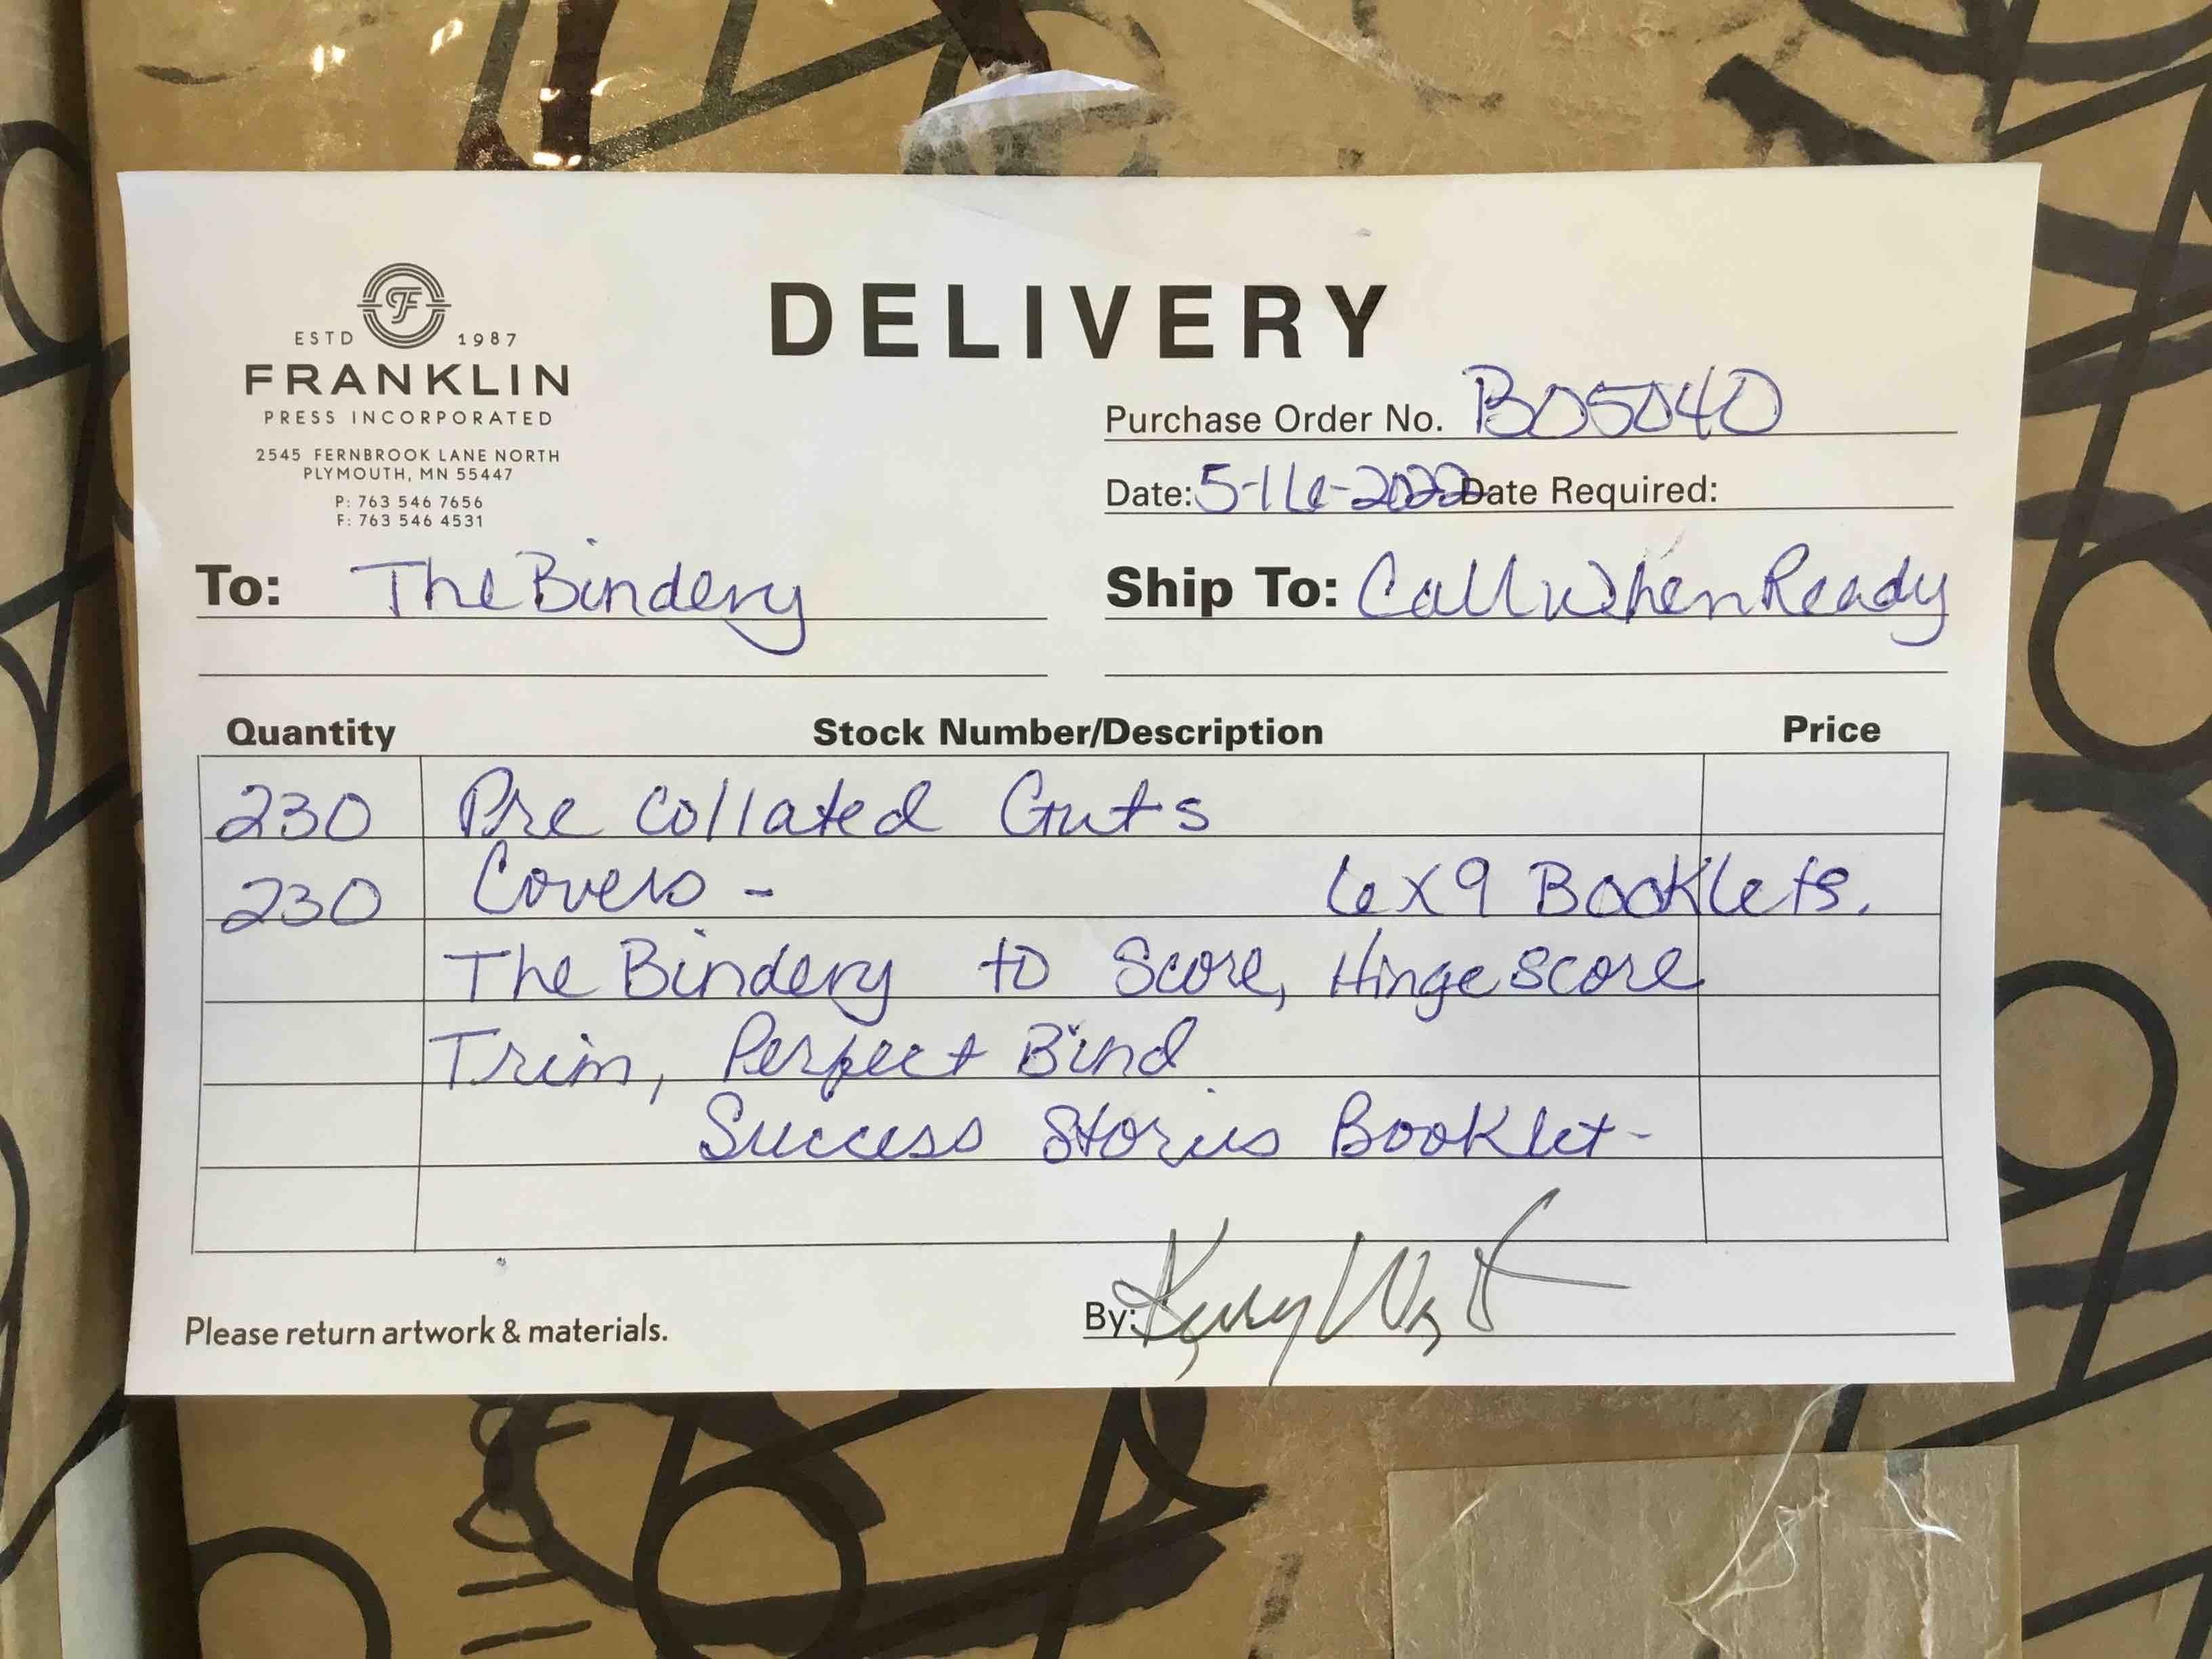 ESTD 1987
FRANKLIN
PRESS INCORPORATED
2545 FERNBROOK LANE NORTH
PLYMOUTH, MN 55447
P: 763 546 7656
F: 763 546 4531
DELIVERY
Purchase Order No. B05040
Date: 5-16-2022 Date Required:
To: The Bindery
Ship To: Call When Ready
Quantity Stock Number/Description Price
230 Pre Collated Guts
230 Covers - 6x9 Booklets.
The Bindery to Score, Hinge score
Trim, Perfect Bind
Success Stories Booklet-
Please return artwork & materials.
By: